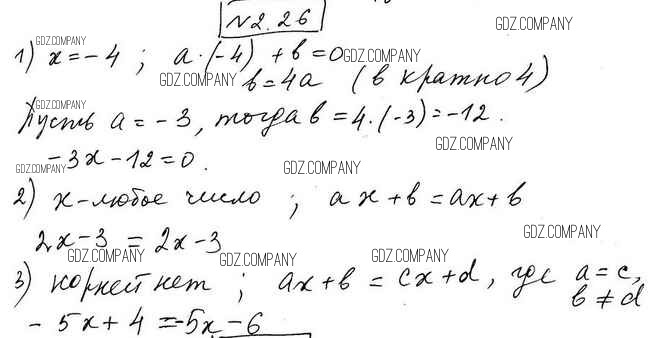 N 2.26
GDZ.COMPANY
GDZ.COMPANY
1) x = -4 ; a·(-4) + b = 0 GDZ.COMPANY
GDZ.COMPANY b = 4a (b кратно 4)
GDZ.COMPANY
Пусть a = -3, тогда b = 4·(-3) = -12.
GDZ.COMPANY
-3x - 12 = 0.
GDZ.COMPANY GDZ.COMPANY
2) x - любое число ; ax + b = ax + b
GDZ.COMPANY
2x - 3 = 2x - 3
GDZ.COMPANY GDZ.COMPANY GDZ.COMPANY
3) корней нет ; ax + b = cx + d, где a = c,
b ≠ d
- 5x + 4 = -5x - 6